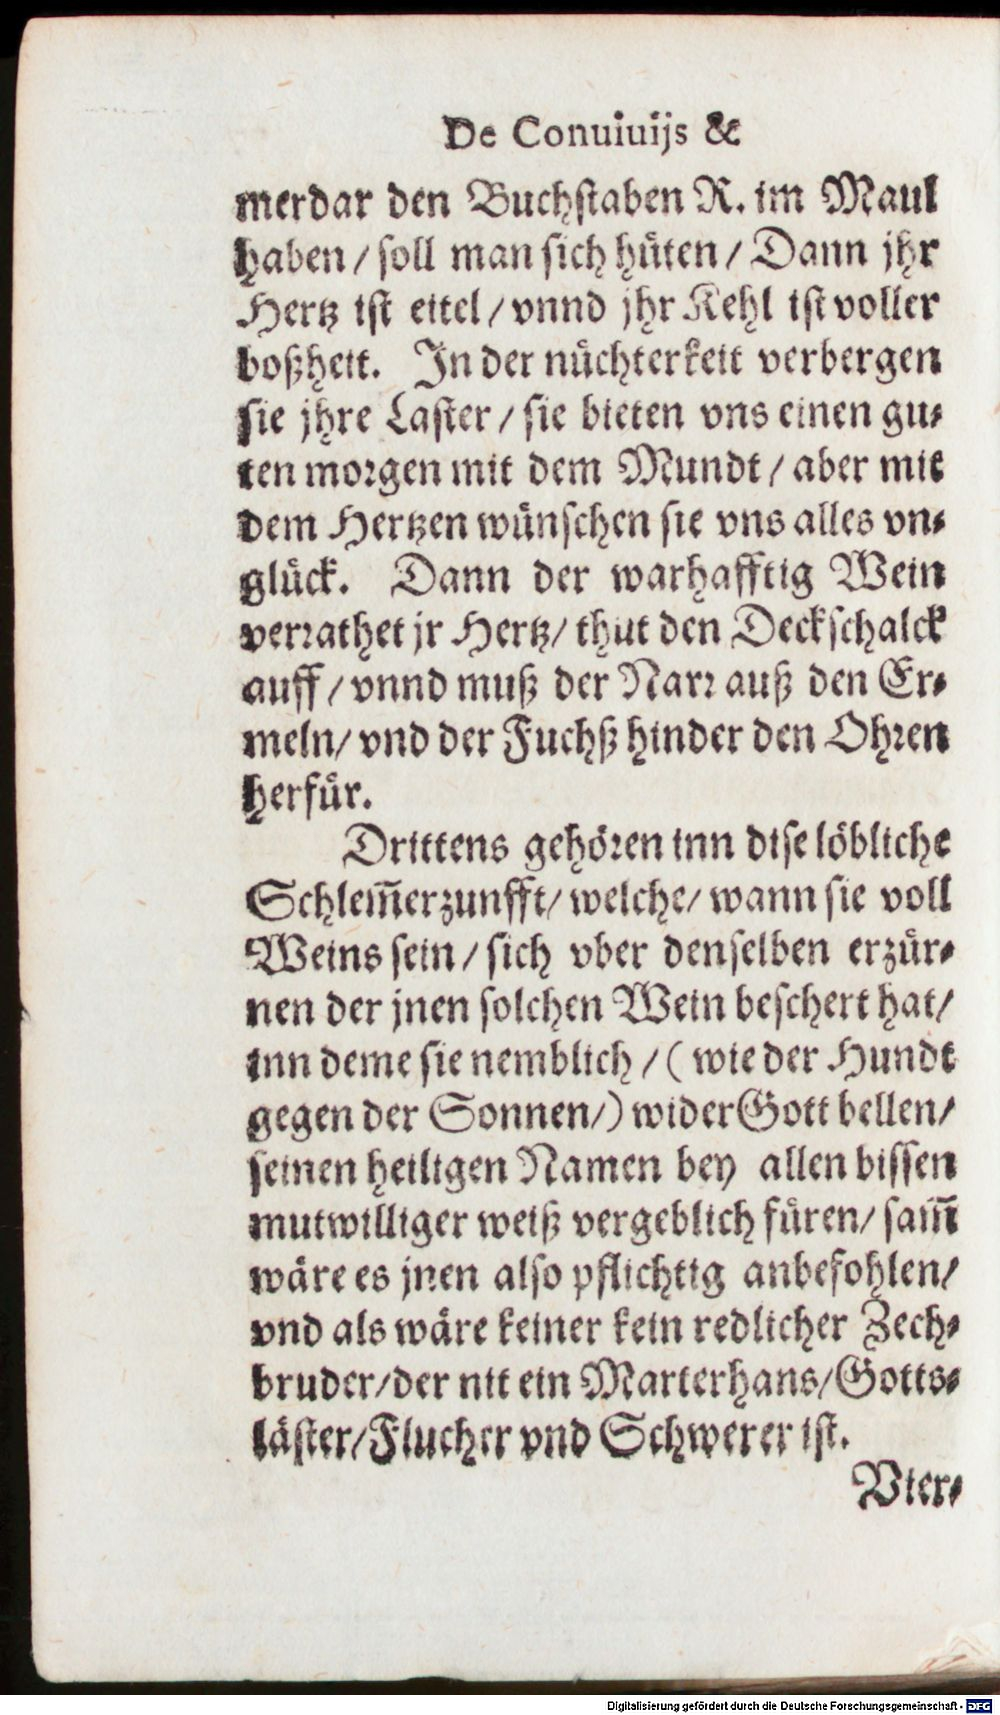 De Conuiuijs &
merdar den Buchstaben R. im Maul
haben / soll man sich hüten / Dann jhr
Hertz ist eitel / vnnd jhr Kehl ist voller
boßheit. In der nüchterkeit verbergen
sie jhre Laster / sie bieten vns einen gu⸗
ten morgen mit dem Mundt / aber mit
dem Hertzen wünschen sie vns alles vn⸗
glück. Dann der warhafftig Wein
verrathet jr Hertz / thut den Deckschalck
auff / vnnd muß der Narr auß den Er⸗
meln / vnd der Fuchß hinder den Ohren
herfür.
Drittens gehören inn dise löbliche
Schlem̃erzunfft / welche / wann sie voll
Weins sein / sich vber denselben erzür⸗
nen der jnen solchen Wein beschert hat /
inn deme sie nemblich / ( wie der Hundt
gegen der Sonnen / ) wider Gott bellen /
seinen heiligen Namen bey allen bissen
mutwilliger weiß vergeblich füren / sam̃
wäre es jnen also pflichtig anbefohlen /
vnd als wäre keiner kein redlicher Zech⸗
bruder / der nit ein Marterhans / Gotts⸗
läster / Flucher vnd Schwerer ist.
Vier⸗
Digitalisierung gefördert durch die Deutsche Forschungsgemeinschaft - DFG